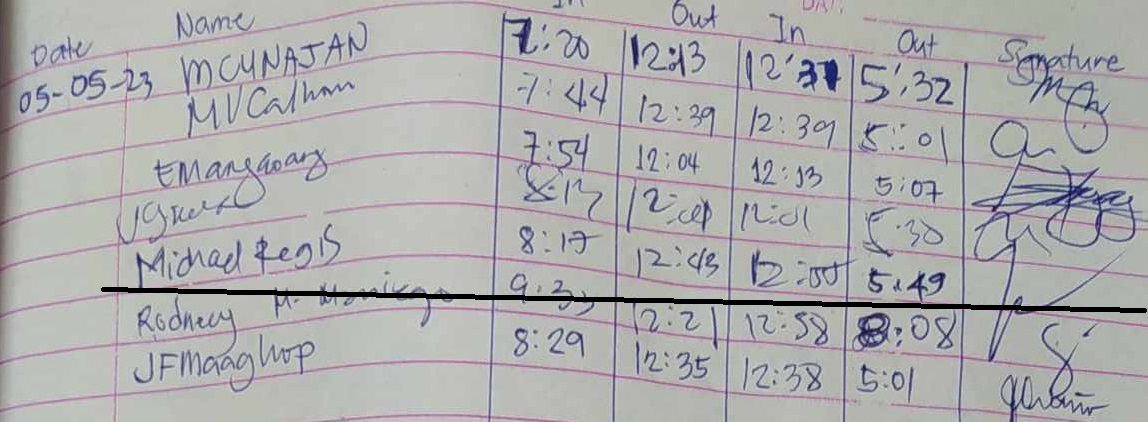 Date Name In Out In Out Signature
05-05-23 MCUNAJAN 7:20 12:13 12:37 5:32
MVCalhom 7:44 12:39 12:39 5:01
EMangaoang 7:54 12:04 12:13 5:07
8:13 12:01 12:01 5:30
Michael Regis 8:17 12:43 12:55 5:49
Rodney M. 9:33 12:21 12:58 8:08
JFMaaghop 8:29 12:35 12:38 5:01